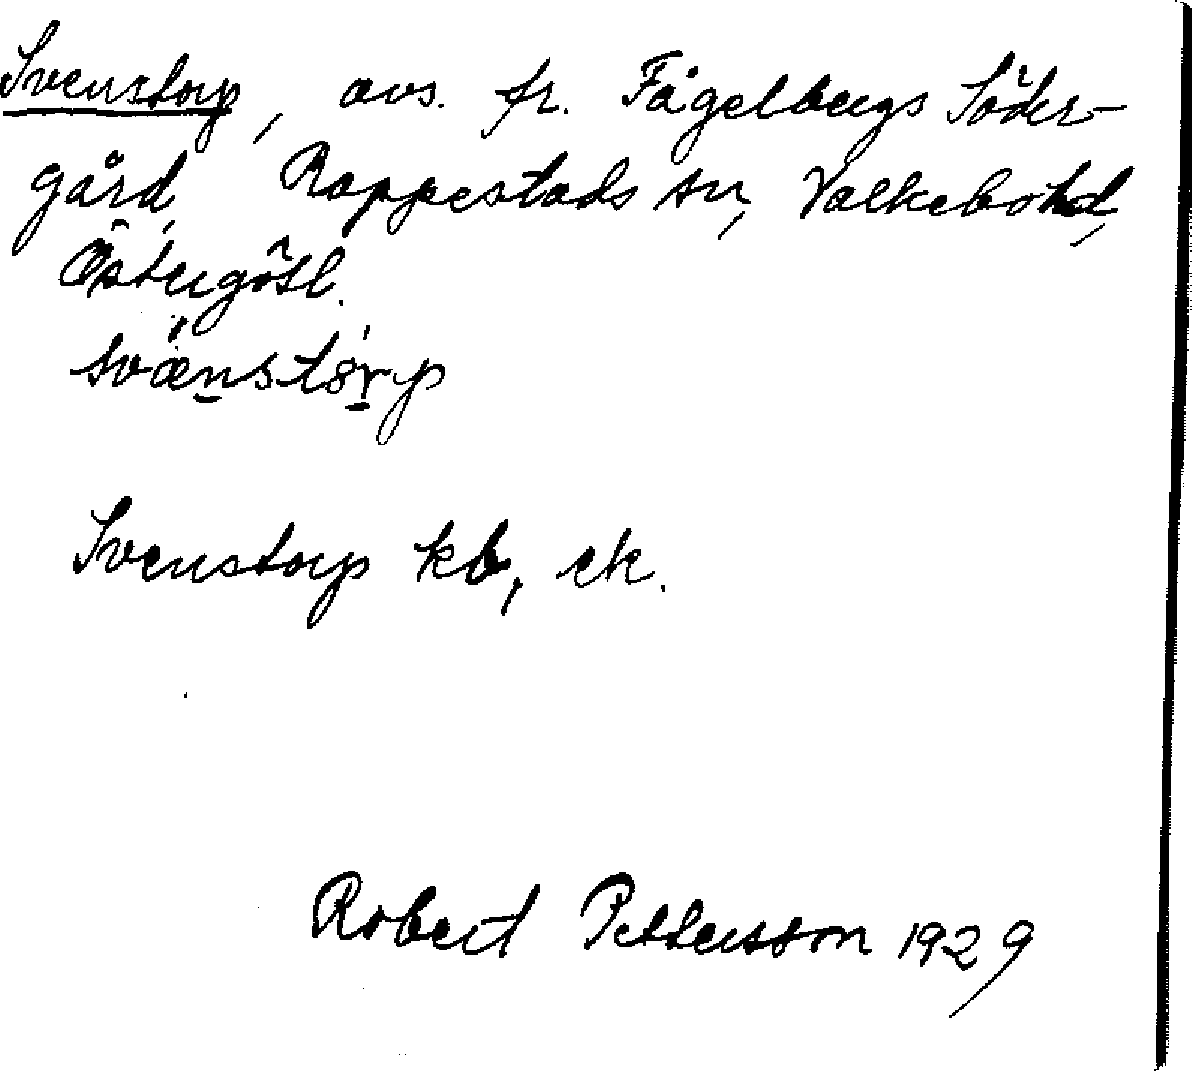 Svenstorp, avs. fr. Fågelbergs Söder-
gård, Rappestads sn, Valkebo hd,
Östergötl.
svænstørp
Svenstorp kb, ek.
Robert Pettersson 1929